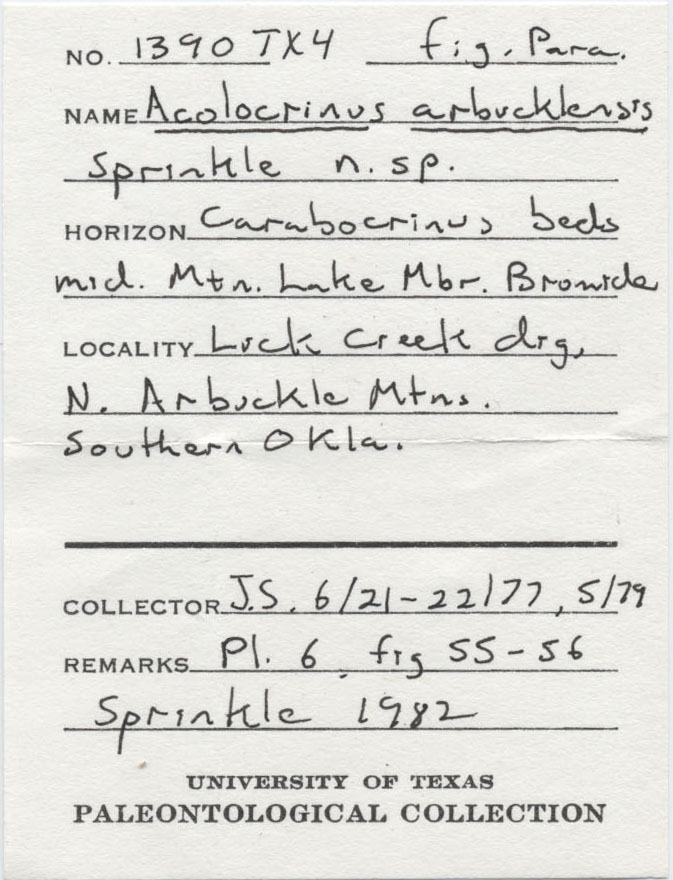 NO. 1390 TX4 fig. Para.
NAME Acolocrinus arbucklensis
Sprinkle n. sp.
HORIZON Carabocrinus beds
mid. Mtn. Lake Mbr. Bromide
LOCALITY Lick Creek drg,
N. Arbuckle Mtns.
Southern Okla.
COLLECTOR J.S. 6/21-22/77, 5/79
REMARKS Pl. 6, fig 55-56
Sprinkle 1982
UNIVERSITY OF TEXAS
PALEONTOLOGICAL COLLECTION